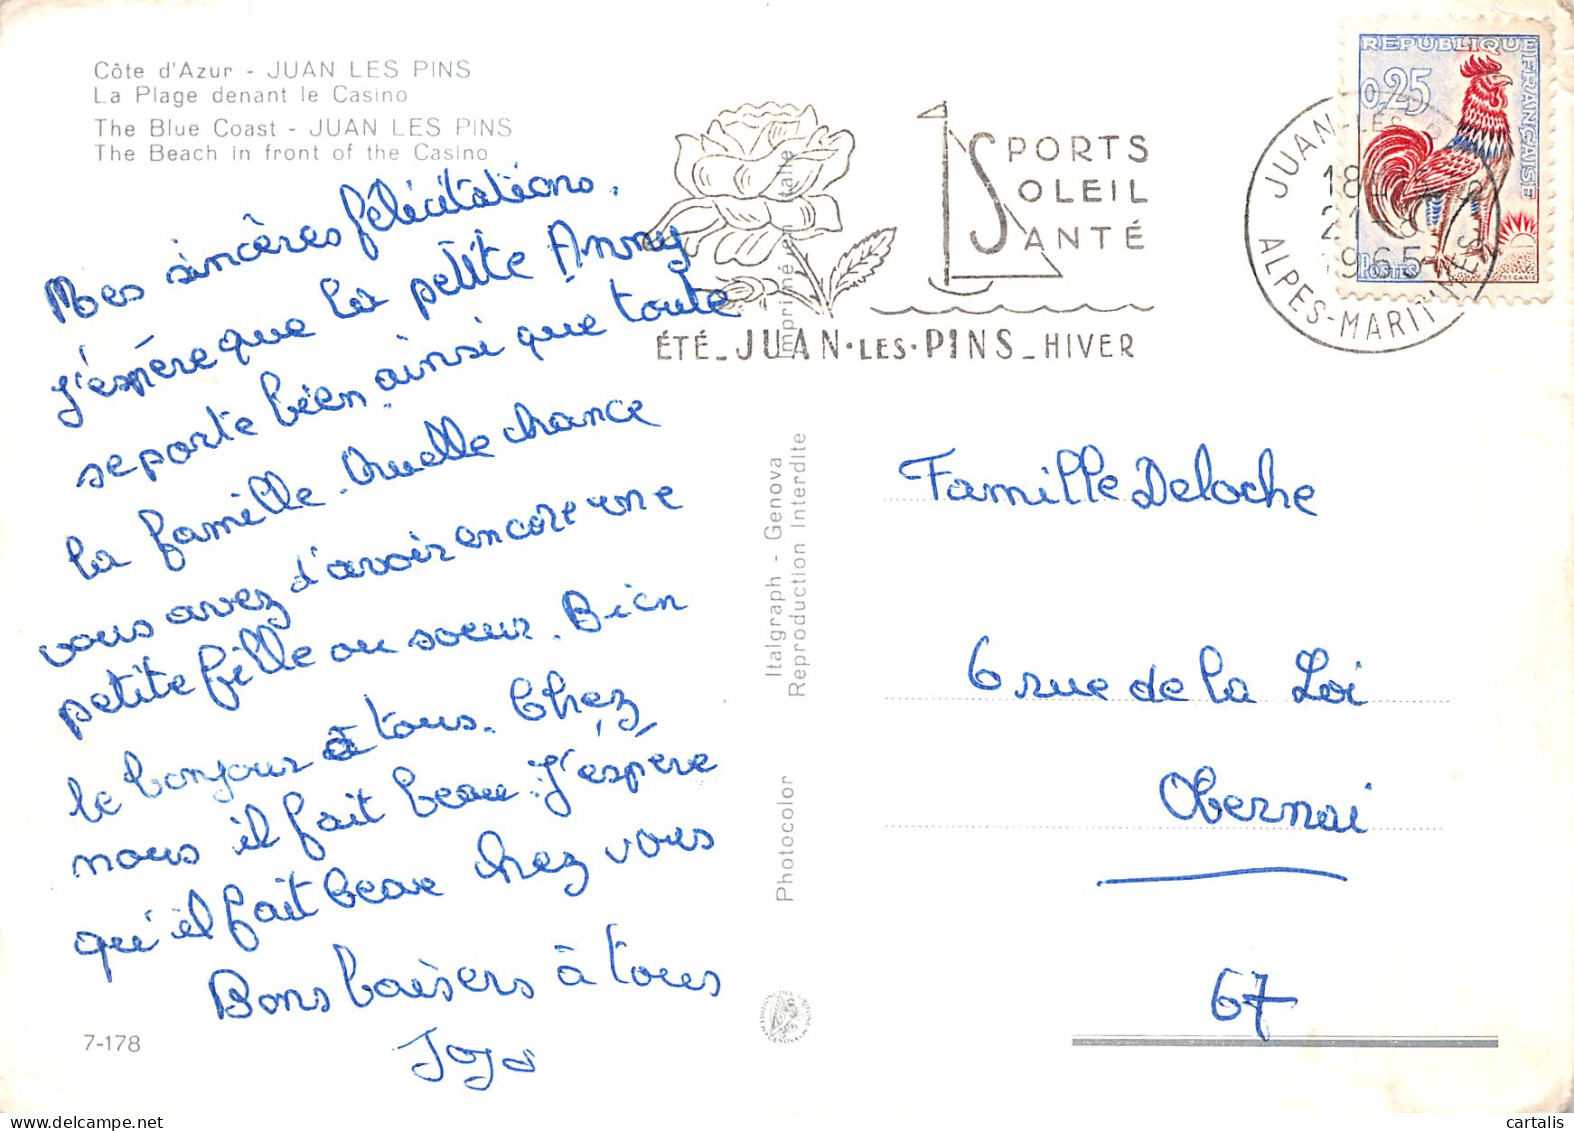 Côte d'Azur - JUAN LES PINS
La Plage denant le Casino
The Blue Coast - JUAN LES PINS
The Beach in front of the Casino
Mes sincères félicitations.
J'espère que la petite Anny
se porte bien ainsi que toute
la famille. Quelle chance
vous avez d'avoir encore une
petite fille ou soeur. Bien
le bonjour à tous. Chez
nous il fait beau. J'éspère
qu'il fait beau chez vous
Bons baisers à tous
Jojo
7-178
Imprimé en Italie
Italgraph - Genova
Reproduction Interdite
Photocolor
SPORTS
SOLEIL
SANTÉ
ÉTÉ_JUAN·LES·PINS_HIVER
JUAN-LES-PINS
18
21
1965
ALPES-MARITIMES
REPUBLIQUE FRANÇAISE
0,25
POSTES
Famille Deloche
6 rue de la Loi
Obernai
67
cartalis